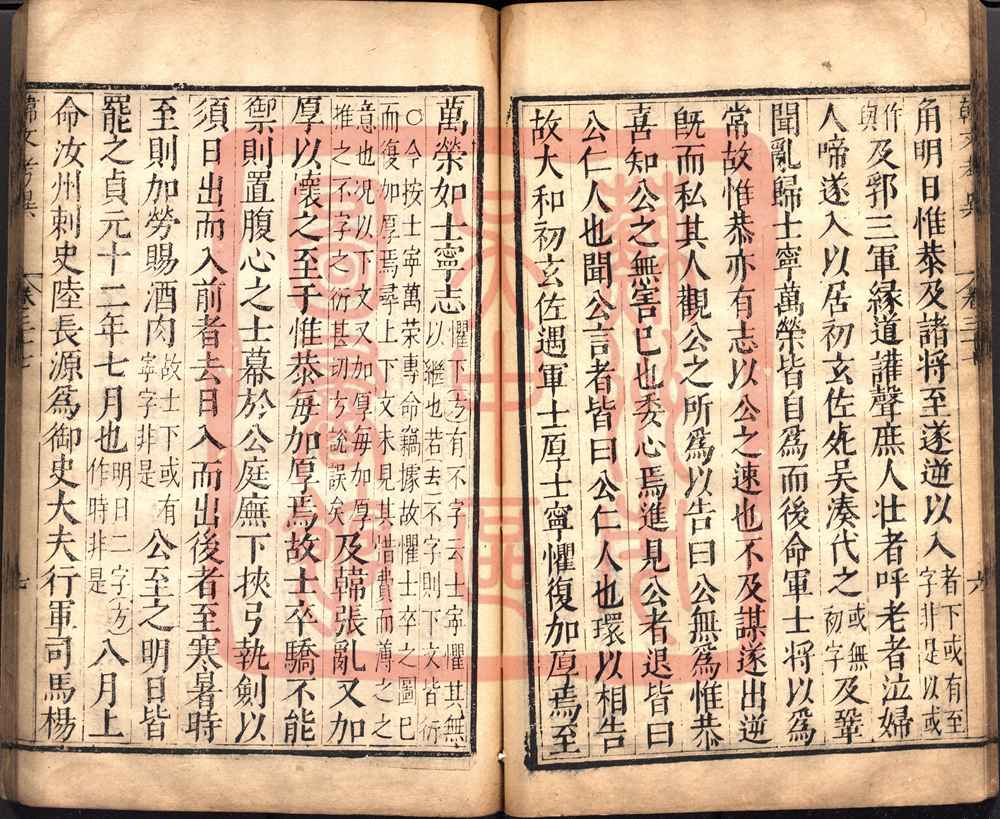 角明日惟恭及諸將至遂逆以入者下或有至字非是以或
作與及郛三軍緣道讙聲庶人壯者呼老者泣婦
人啼遂入以居初玄佐死吳湊代之或無初字及鞏
聞亂歸士寧萬榮皆自爲而後命軍士將以爲
常故惟恭亦有志以公之速也不及謀遂出逆
旣而私其人觀公之所爲以告曰公無爲惟恭
喜知公之無害已也委心焉進見公者退皆曰
公仁人也聞公言者皆曰公仁人也環以相告
故大和初玄佐遇軍士厚士寧懼復加厚焉至
六
萬榮如士寧志懼下方有不字云士寧懼其無以繼也若去不字則下文皆衍
○今按士寧萬榮專命竊據故懼士卒之圖已而復加厚焉尋上下文未見其惜費而薄之之
意也况以下文又加厚每加厚推之不字之衍甚切方說誤矣及韓張亂又加
厚以懷之至于惟恭每加厚焉故士卒驕不能
禦則置腹心之士幕於公庭廡下挾弓執劍以
須日出而入前者去日入而出後者至寒暑時
至則加勞賜酒肉故士下或有寧字非是公至之明日皆
罷之貞元十二年七月也明日二字方作時非是八月上
命汝州刺史陸長源爲御史大夫行軍司馬楊
韓文考異
七